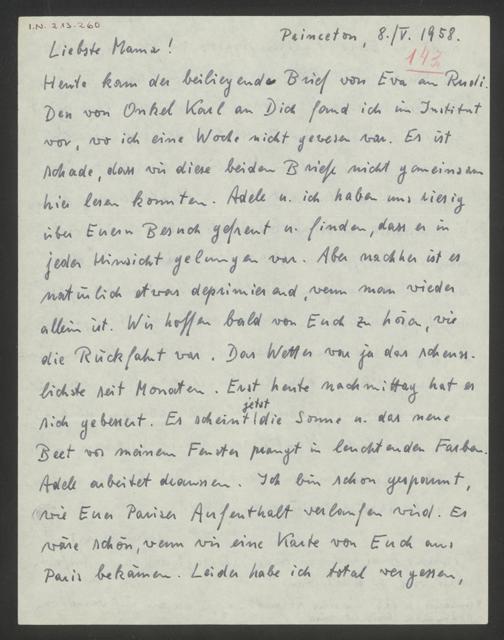 I.N. 213.260
Princeton, 8./V. 1958.
143
Liebste Mama!
Heute kam der beiliegende Brief von Eva an Rudi.
Den von Onkel Karl an Dich fand ich im Institut
vor, wo ich eine Woche nicht gewesen war. Es ist
schade, dass wir diese beiden Briefe nicht gemeinsam
hier lesen konnten. Adele u. ich haben uns riesig
über Euern Besuch gefreut u. finden, dass er in
jeder Hinsicht gelungen war. Aber nachher ist es
natürlich etwas deprimierend, wenn man wieder
allein ist. Wir hoffen bald von Euch zu hören, wie
die Rückfahrt war. Das Wetter war ja das scheuss-
lichste seit Monaten. Erst heute nachmittag hat es
sich gebessert. Es scheint jetzt die Sonne u. das neue
Beet vor meinem Fenster prangt in leuchtenden Farben.
Adele arbeitet draussen. Ich bin schon gespannt,
wie Euer Pariser Aufenthalt verlaufen wird. Es
wäre schön, wenn wir eine Karte von Euch aus
Paris bekämen. Leider habe ich total vergessen,